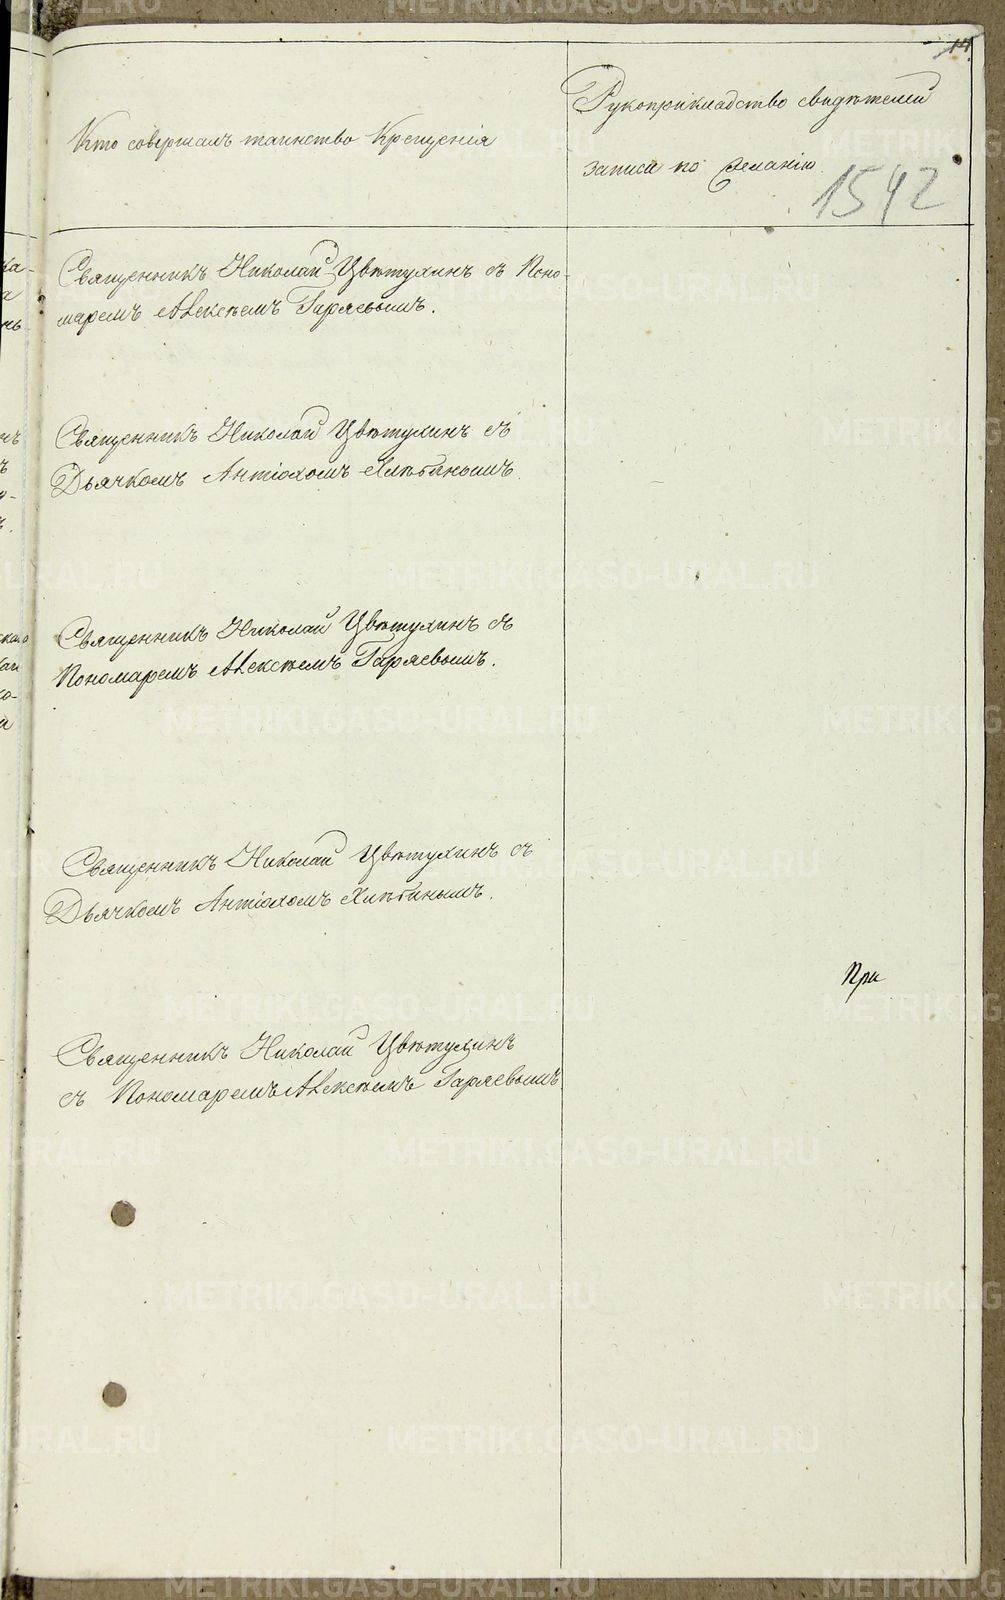 14.
Кто совершалъ таинство Крещенія
Рукоприкладство свидѣтелей
записи по желанію
1542
Священникъ Николай Цвѣтухинъ съ Поно-
маремъ Алексѣемъ Гаряевымъ.
Священникъ Николай Цвѣтухинъ съ
Дьячкомъ Антіохомъ Хлѣбинымъ.
Священникъ Николай Цвѣтухинъ съ
Пономаремъ Алексѣемъ Гаряевымъ.
Священникъ Николай Цвѣтухинъ съ
Дьячкомъ Антіохомъ Хлѣбинымъ.
При
Священникъ Николай Цвѣтухинъ
съ Пономаремъ Алексѣемъ Гаряевымъ
METRIKI.GASO-URAL.RU